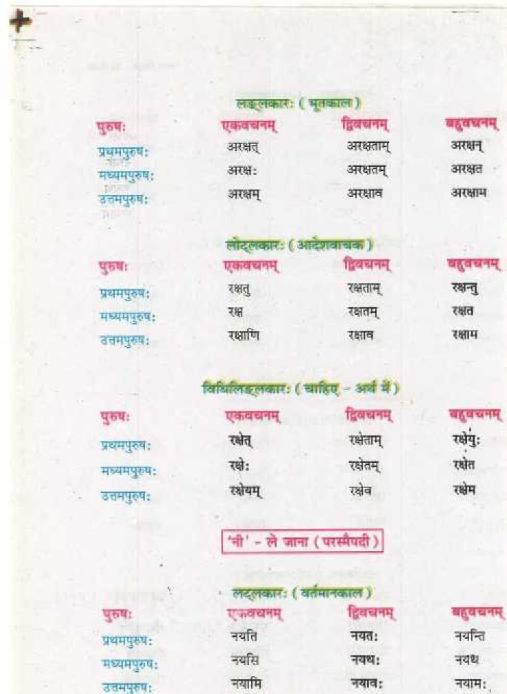 लङ्लकारः ( भूतकाल )
पुरुषः एकवचनम् द्विवचनम् बहुवचनम्
प्रथमपुरुषः अरक्षत् अरक्षताम् अरक्षन्
मध्यमपुरुषः अरक्षः अरक्षतम् अरक्षत
उत्तमपुरुषः अरक्षम् अरक्षाव अरक्षाम
लोट्लकारः ( आदेशवाचक )
पुरुषः एकवचनम् द्विवचनम् बहुवचनम्
प्रथमपुरुषः रक्षतु रक्षताम् रक्षन्तु
मध्यमपुरुषः रक्ष रक्षतम् रक्षत
उत्तमपुरुषः रक्षाणि रक्षाव रक्षाम
विधिलिङ्लकारः ( चाहिए - अर्थ में )
पुरुषः एकवचनम् द्विवचनम् बहुवचनम्
प्रथमपुरुषः रक्षेत् रक्षेताम् रक्षेयुः
मध्यमपुरुषः रक्षेः रक्षेतम् रक्षेत
उत्तमपुरुषः रक्षेयम् रक्षेव रक्षेम
'नी' - ले जाना ( परस्मैपदी )
लट्लकारः ( वर्तमानकाल )
पुरुषः एकवचनम् द्विवचनम् बहुवचनम्
प्रथमपुरुषः नयति नयतः नयन्ति
मध्यमपुरुषः नयसि नयथः नयथ
उत्तमपुरुषः नयामि नयावः नयामः